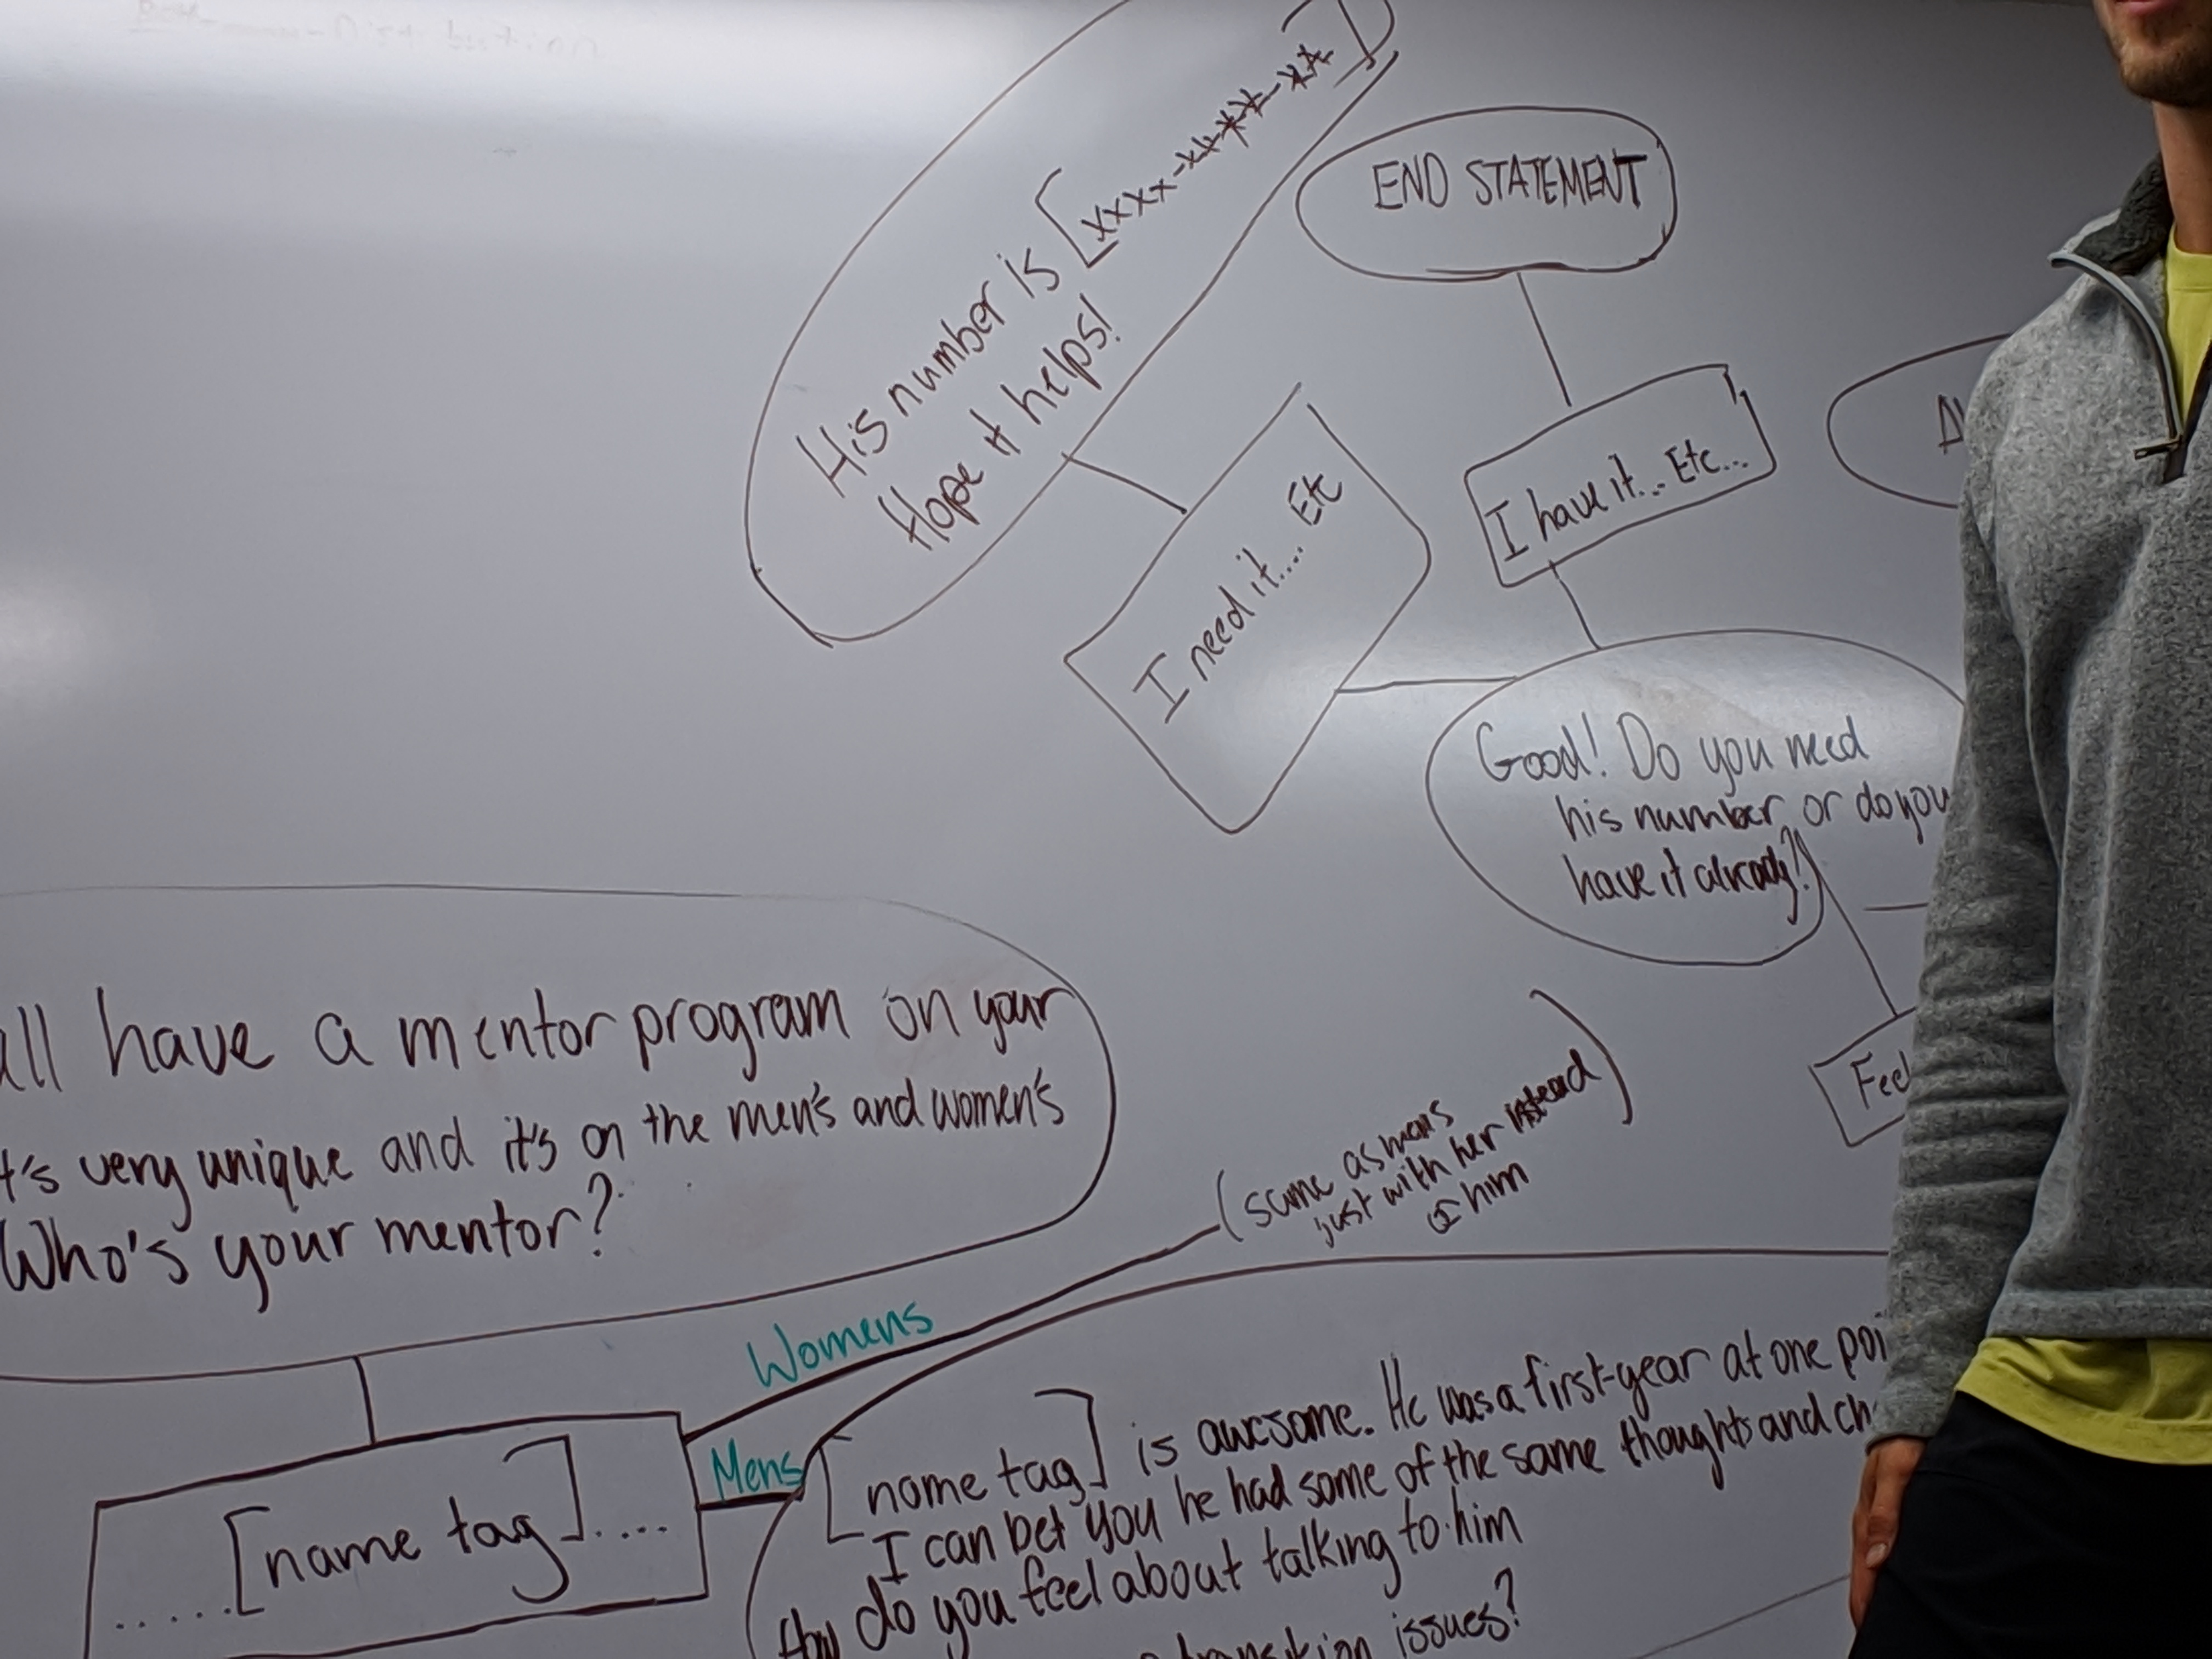 His number is [xxxx-xxxxx-xx]
Hope it helps!
END STATEMENT
I have it... Etc...
I need it.... Etc
Good! Do you need
his number or do you
have it already?
Feel
all have a mentor program on your
It's very unique and it's on the men's and women's
Who's your mentor?
(same as mens
just with her instead
of him)
Womens
Mens
.....[name tag]....
[name tag] is awesome. He was a first-year at one poi
I can bet you he had some of the same thoughts and ch
How do you feel about talking to him
transition issues?